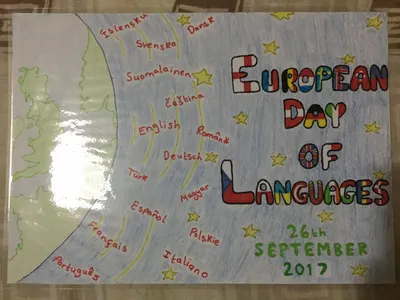 Íslenska
Dansk
Svenska
Suomalainen
Čeština
English
Română
Deutsch
Türk
Magyar
Español
Polskie
Français
Italiano
Português
EUROPEAN
DAY
OF
LANGUAGES
26th
SEPTEMBER
2017